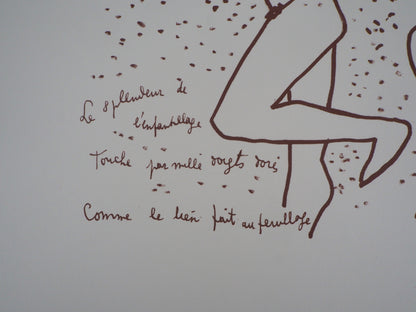 La splendeur de
l'enfantillage
Touche par mille doigts dorés
Comme le lien fait au feuillage